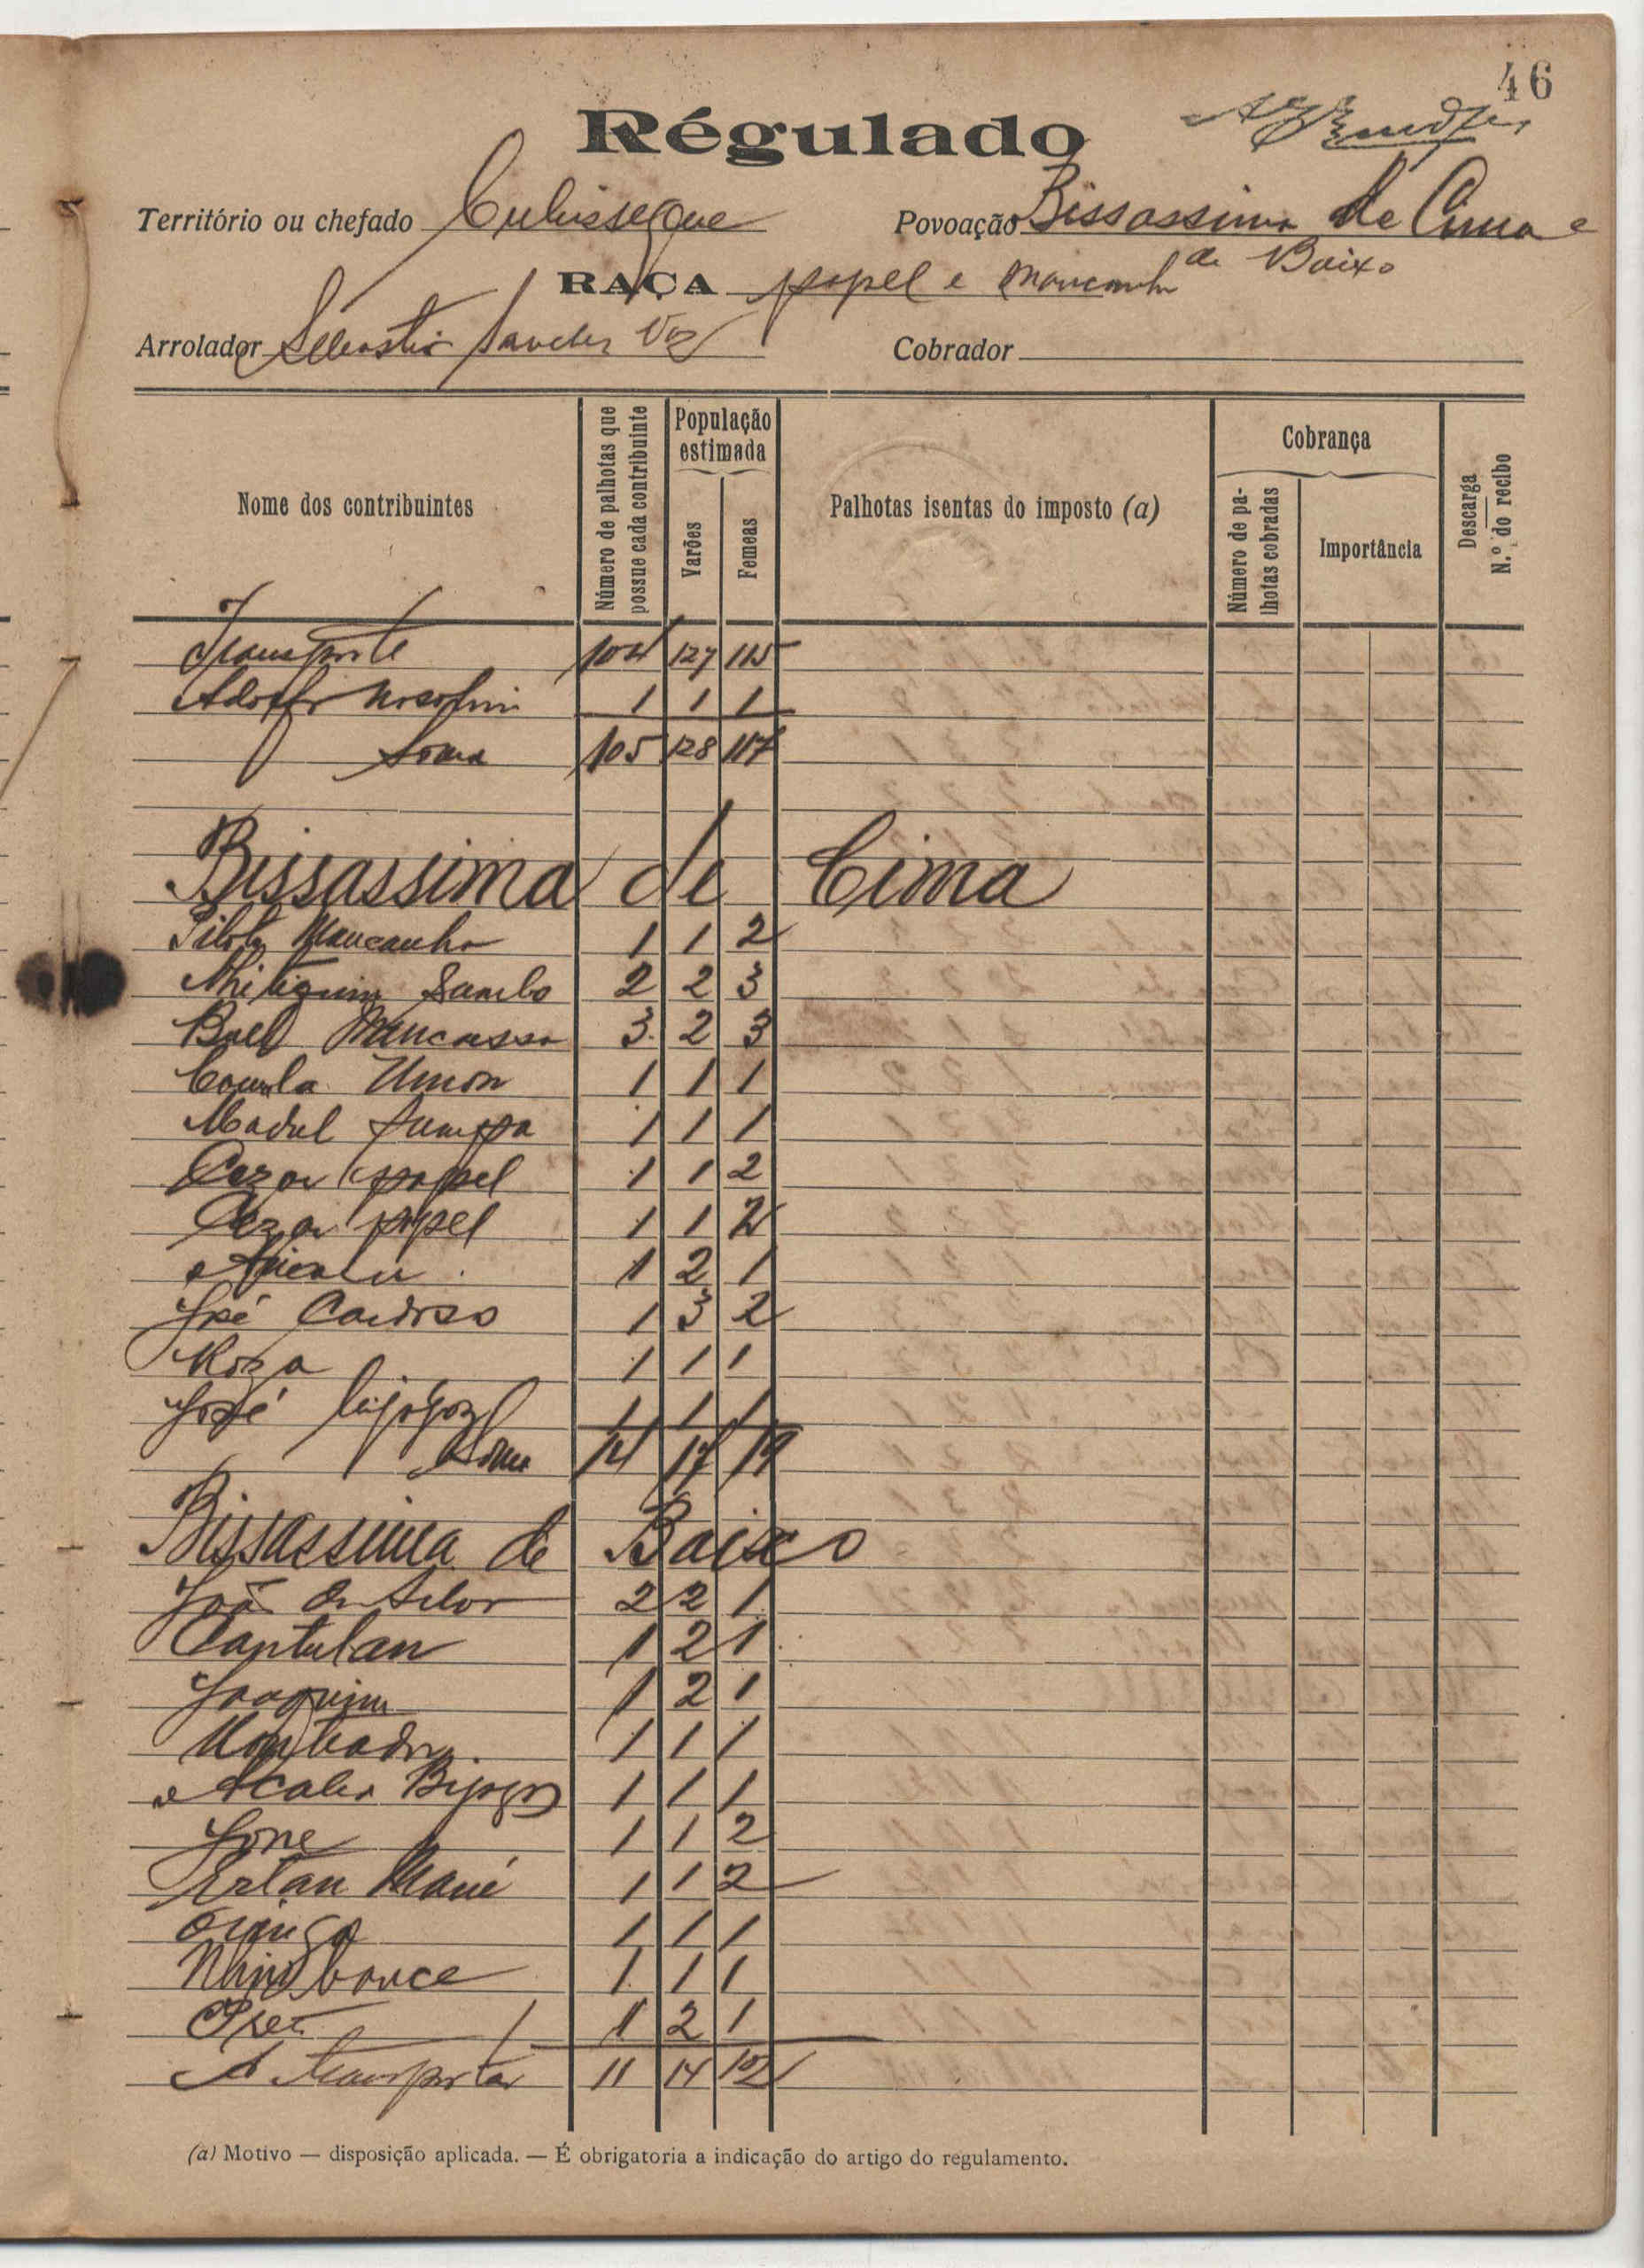 46
Régulado
Território ou chefado Cubisseque Povoação Bissassima de Cima e
de Baixo
RAÇA papel e mancanha
Arrolador Sebastião Sanches Vaz Cobrador
Nome dos contribuintes Número de palhotas que possue cada contribuinte População estimada Varões Femeas Palhotas isentas do imposto (a) Cobrança Número de palhotas cobradas Importância Descarga N.º do recibo
Transporte 104 127 115
Adolfo 1 1 1
Soma 105 128 117
Bissassima de Cima
Mancanha 1 1 2
Sambo 2 2 3
Mancassa 3 2 3
Umon 1 1 1
Madul 1 1 1
Cezar papel 1 1 2
Cezar papel 1 1 2
1 2 1
José Cardoso 1 3 2
Roza 1 1 1
José bijógoz 1 1 1
Soma 14 17 19
Bissassima de Baixo
João da Silva 2 2 1
Cantulan 1 2 1
Joaquim 1 2 1
1 1 1
Bijogoz 1 1 1
Jone 1 1 2
Mané 1 1 2
1 1 1
1 1 1
1 2 1
A transportar 11 14 12
(a) Motivo — disposição aplicada. — É obrigatoria a indicação do artigo do regulamento.